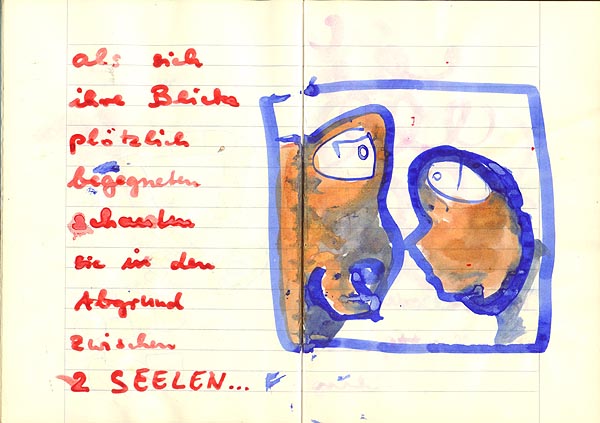 als sich
ihre Blicke
plötzlich
begegneten
schauten
sie in den
Abgrund
zwischen
2 SEELEN...